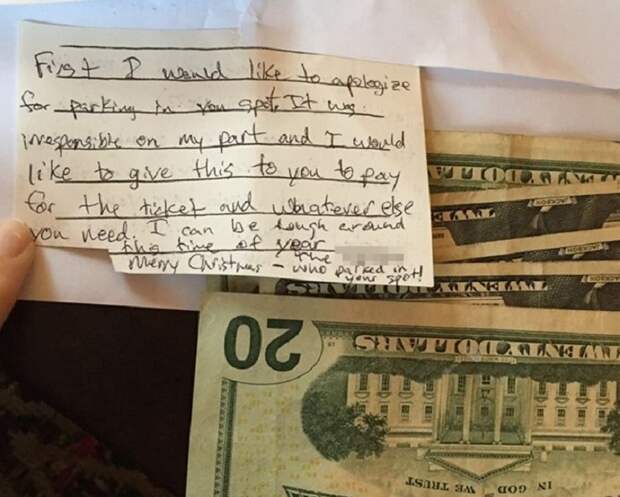 First I would like to apologize
for parking in you spot. It was
irresponsible on my part and I would
like to give this to you to pay
for the ticket and whatever else
you need. I can be tough around
this time of year
Merry Christmas - The
who parked in
your spot!
TWENTY DOLLARS
JACKSON
TWENTY DOLLARS
20
TWENTY DOLLARS
IN GOD WE TRUST